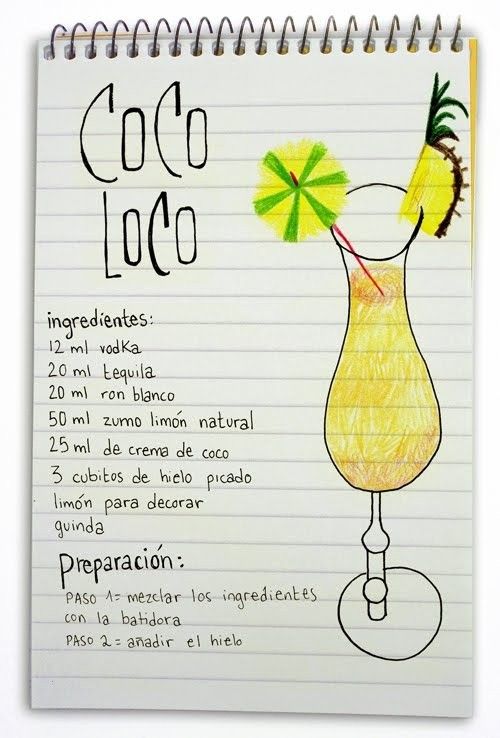 COCO
LOCO
ingredientes:
12 ml vodka
20 ml tequila
20 ml ron blanco
50 ml zumo limón natural
25 ml de crema de coco
3 cubitos de hielo picado
limón para decorar
guinda
preparación:
PASO 1= mezclar los ingredientes
con la batidora
PASO 2= añadir el hielo